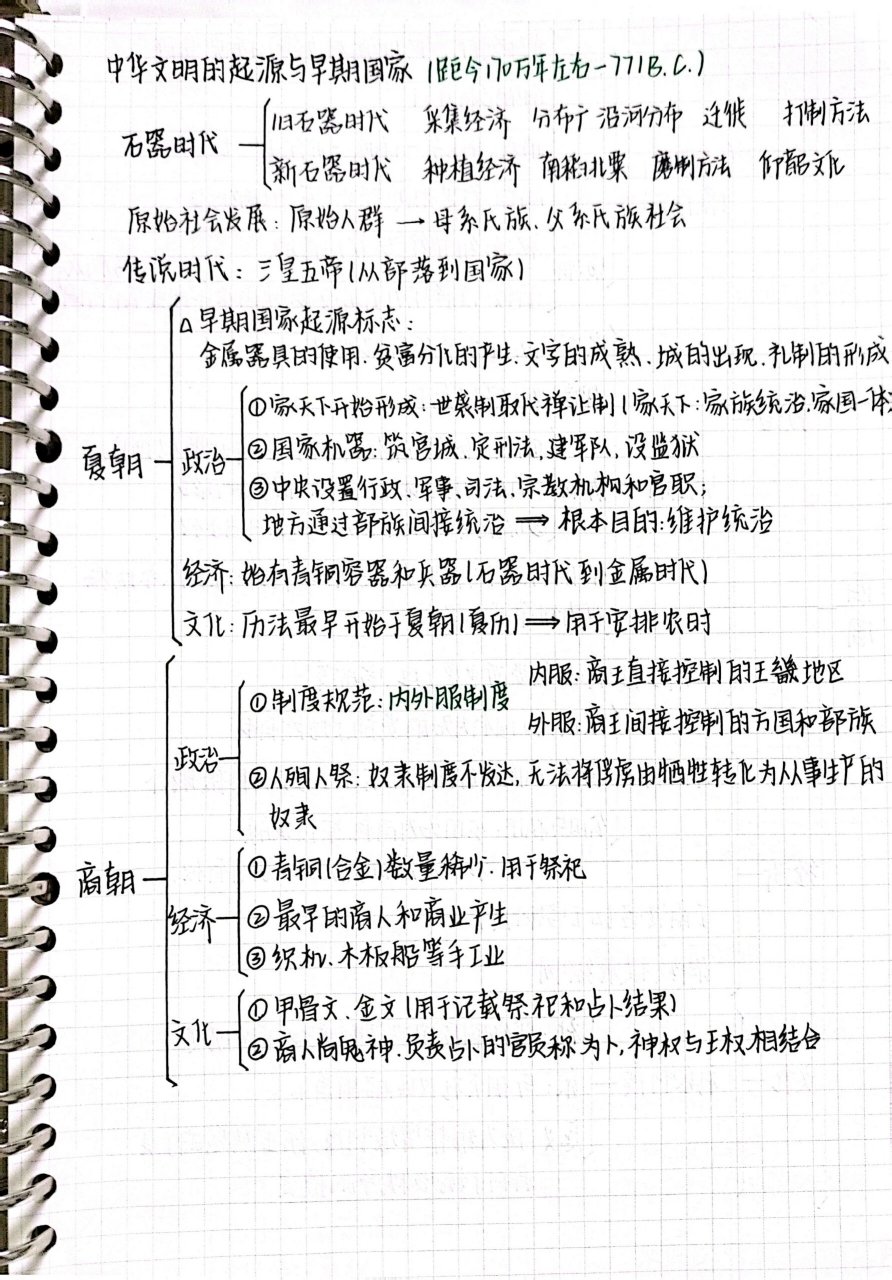 中华文明的起源与早期国家(距今170万年左右-771B.C.)
石器时代
旧石器时代 采集经济 分布广 沿河分布 迁徙 打制方法
新石器时代 种植经济 南稻北粟 磨制方法 仰韶文化
原始社会发展:原始人群→母系氏族、父系氏族社会
传说时代:三皇五帝(从部落到国家)
夏朝
△早期国家起源标志:
金属器具的使用、贫富分化的产生、文字的成熟、城的出现、礼制的形成
政治
①家天下开始形成:世袭制取代禅让制(家天下:家族统治,家国一体
②国家机器:筑宫城、定刑法,建军队,设监狱
③中央设置行政、军事、司法、宗教机构和官职;
地方通过部族间接统治⟹根本目的:维护统治
经济:始有青铜容器和兵器(石器时代到金属时代)
文化:历法最早开始于夏朝(夏历)⟹用于安排农时
商朝
政治
①制度规范:内外服制度
内服:商王直接控制的王畿地区
外服:商王间接控制的方国和部族
②人殉人祭:奴隶制度不发达,无法将俘虏由牺牲转化为从事生产的
奴隶
经济
①青铜(合金)数量稀少.用于祭祀
②最早的商人和商业产生
③织机、木板船等手工业
文化
①甲骨文、金文(用于记载祭祀和占卜结果)
②商人尚鬼神.负责占卜的官员称为卜,神权与王权相结合